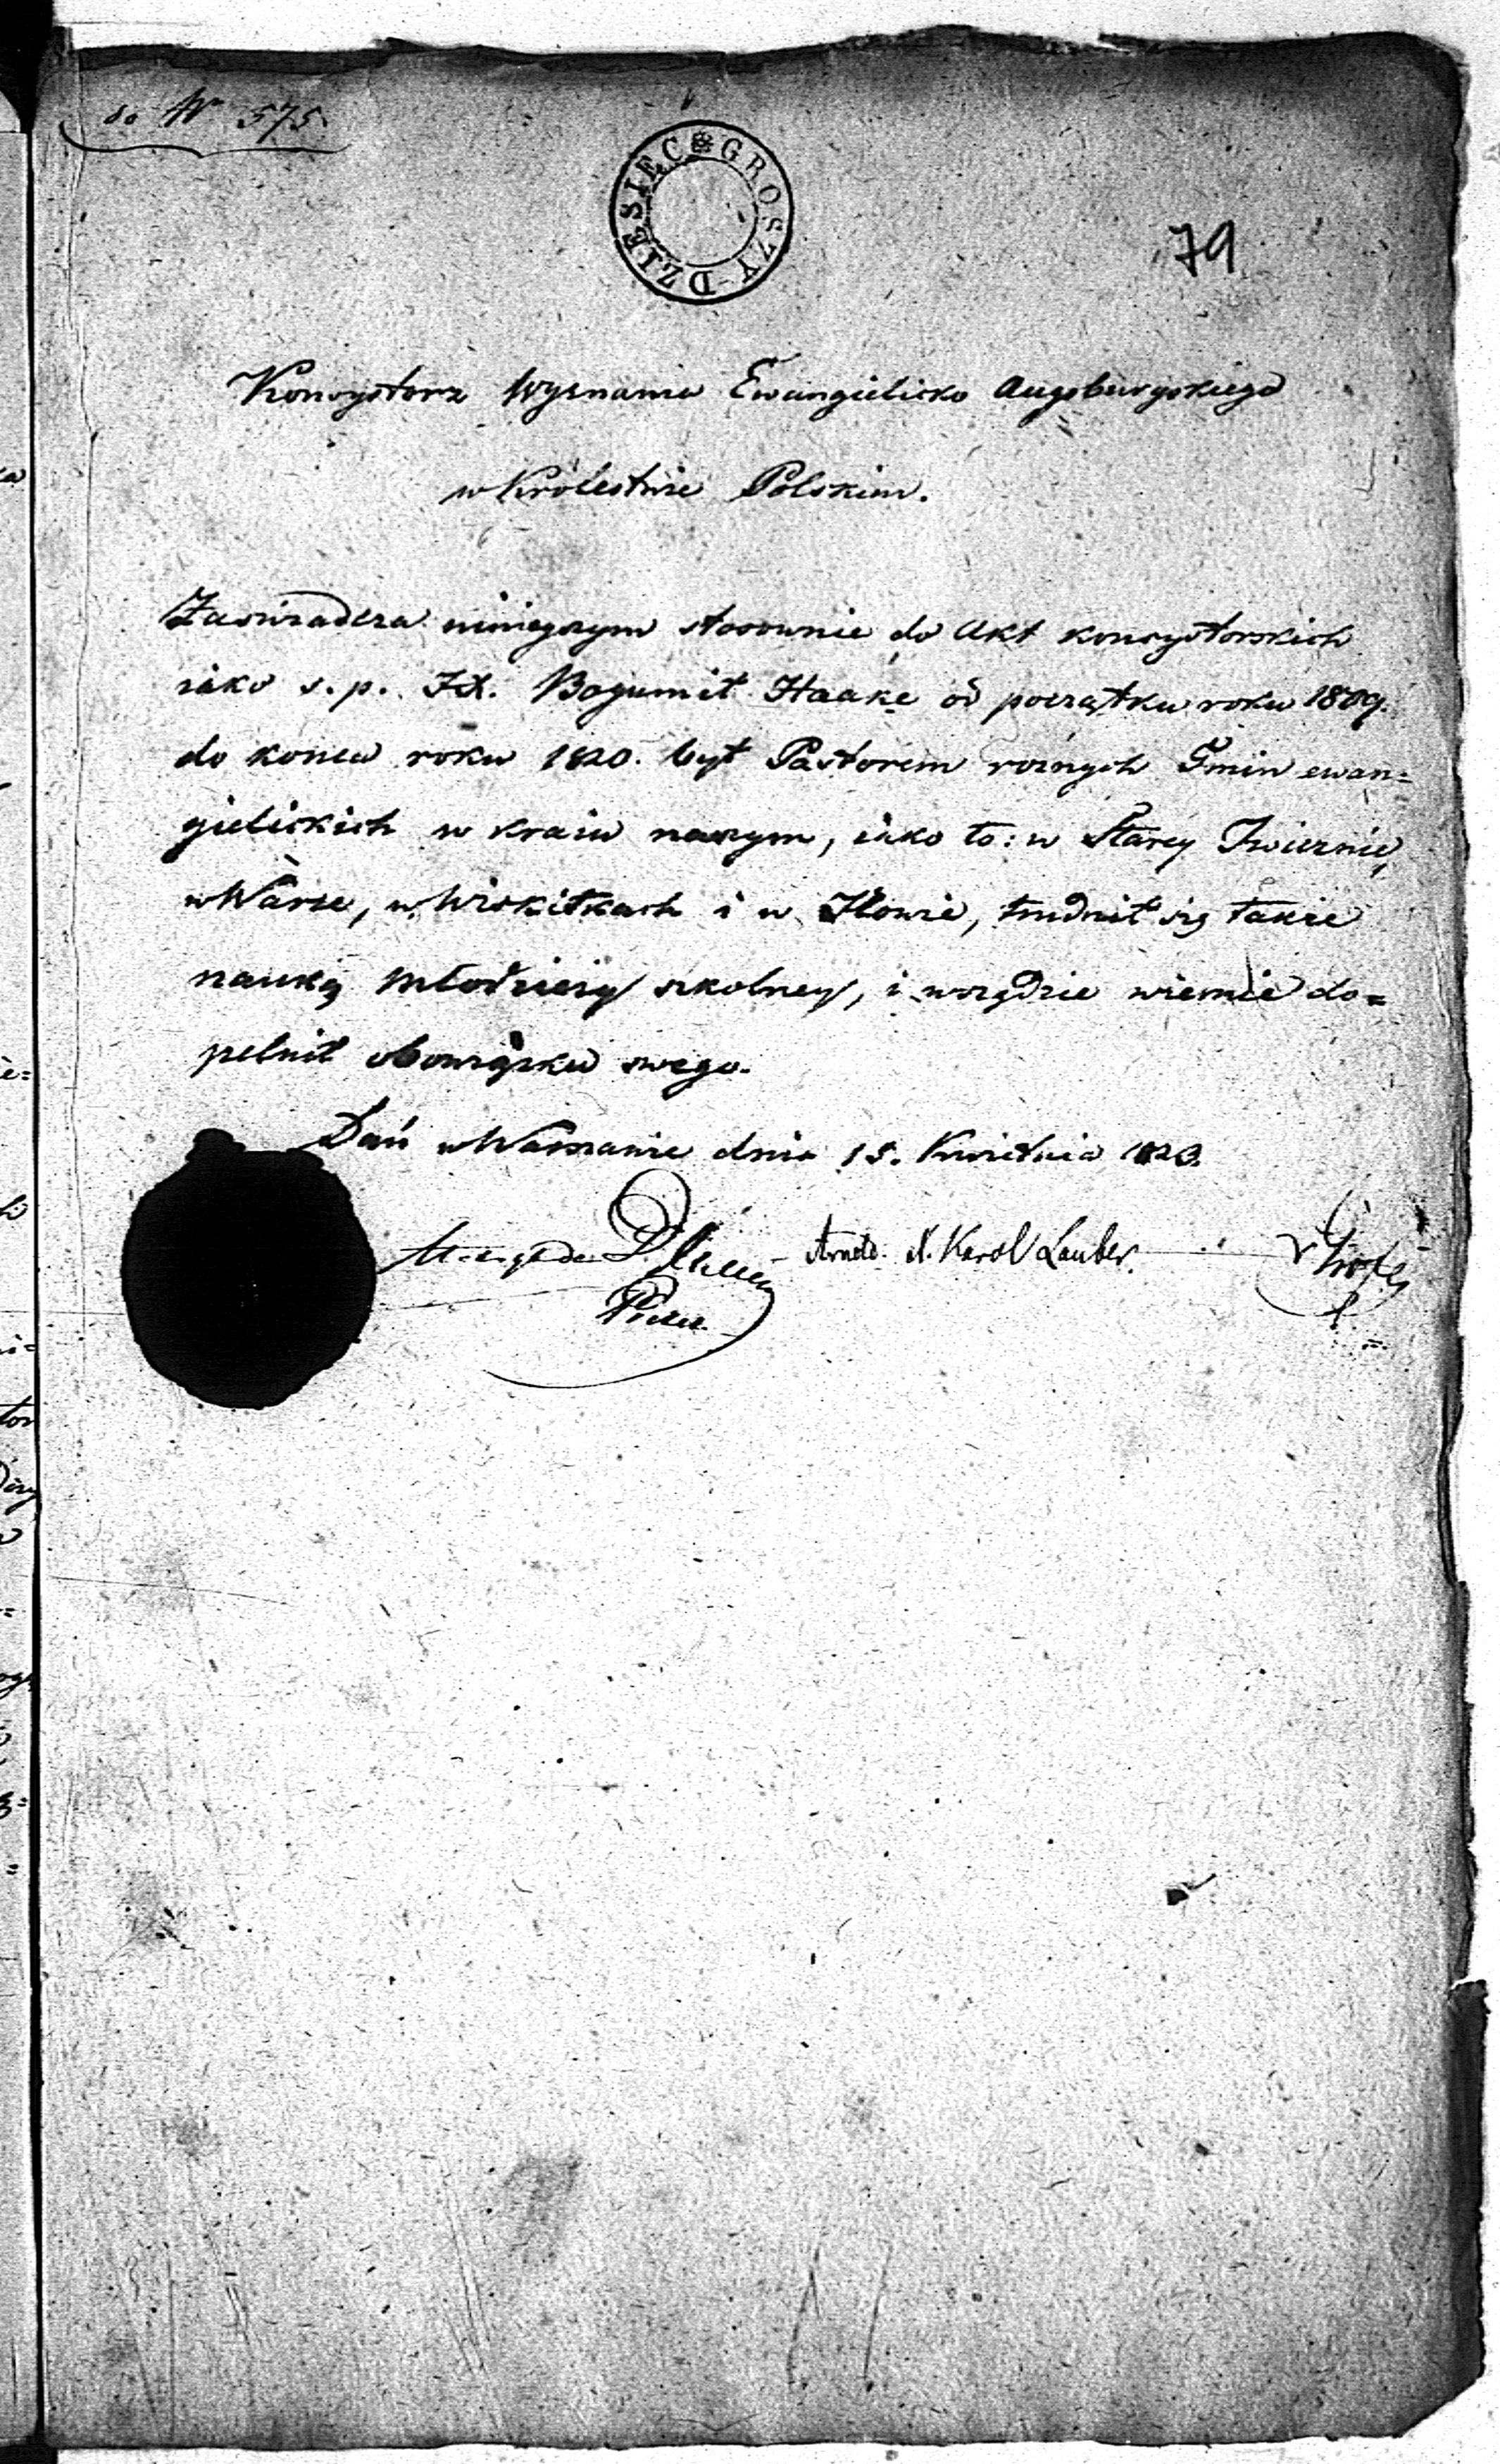 do Nr 575.
DZIESIĘC GROSZY
79
Konsystorz Wyznania Ewangielicko Augsburgskiego
w Królestwie Polskim.
Zaświadcza ninieyszym stosownie do Akt konsystorskich
iako s. p. JX. Bogumił Haake od początku roku 1809.
do końca roku 1820. był Pastorem rożnych Gmin ewan=
gielickich w kraiu naszym, iako to: w Starey Iwicznie,
w Warce, w Wiskitkach i w Iłowie, trudnił się także
nauką młodzieży szkolney, i wszędzie wiernie do=
pełnił obowiązku swego.
Dań w Warszawie dnia 15. Kwietnia 1823.
Karol Lauber.
Prezes